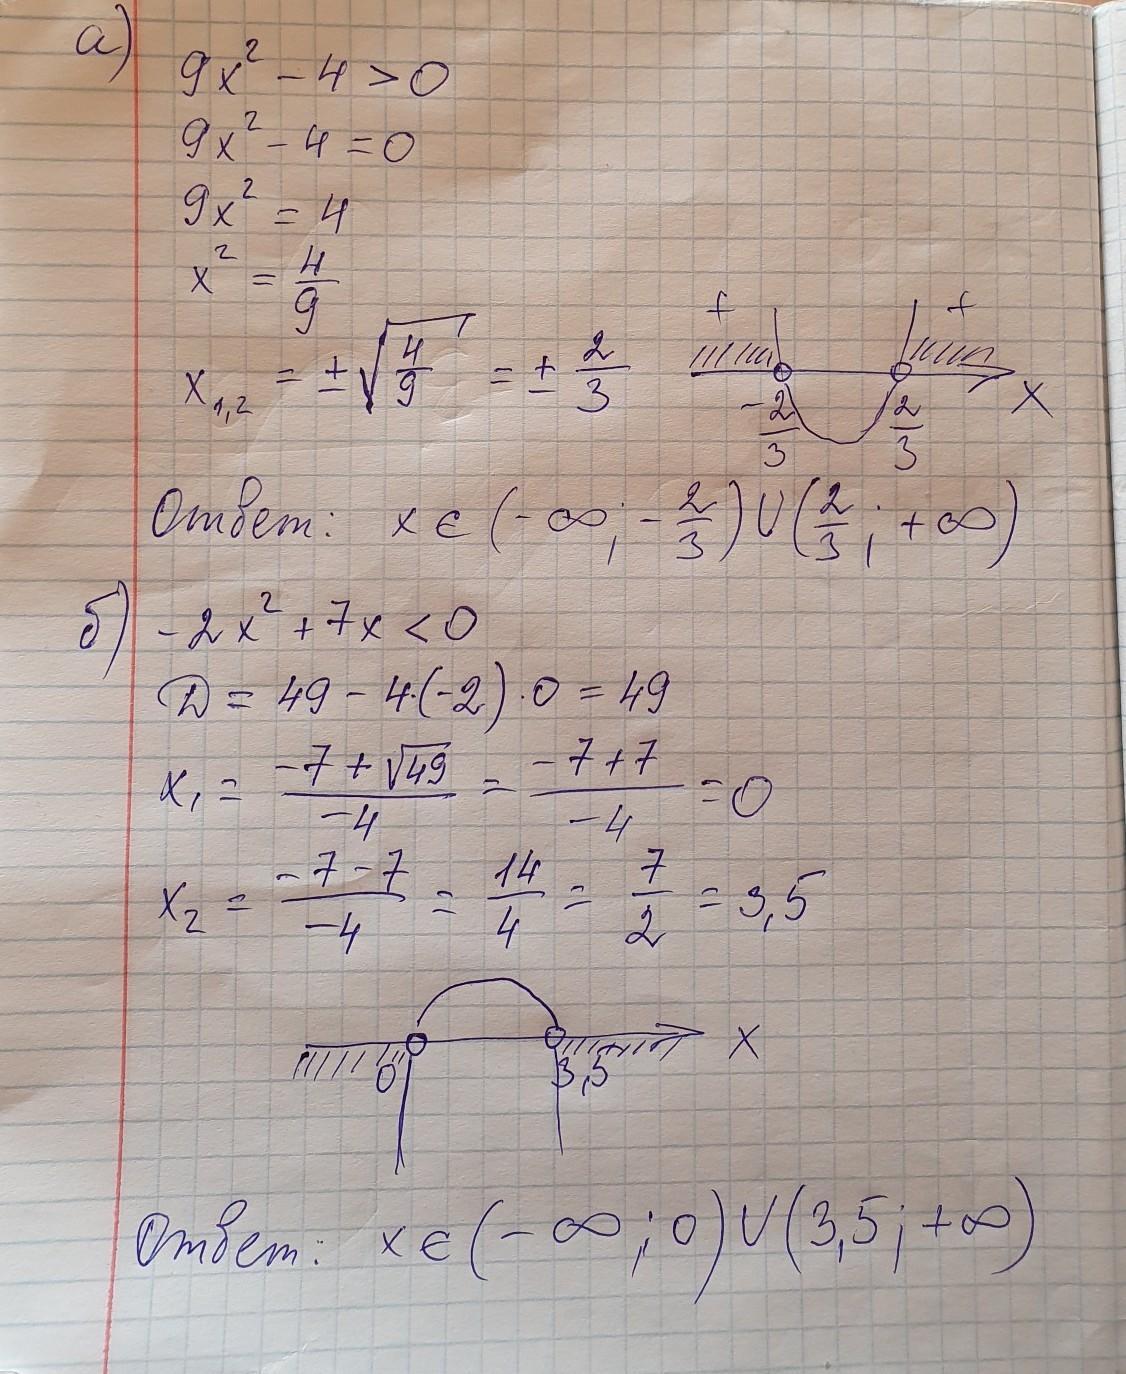 а)
9x² - 4 > 0
9x² - 4 = 0
9x² = 4
x² = 4/9
x₁,₂ = ±√(4/9) = ± 2/3
+ +
-2/3 2/3 x
Ответ: x ∈ (-∞; -2/3) ∪ (2/3; +∞)
б) -2x² + 7x < 0
D = 49 - 4·(-2)·0 = 49
x₁ = (-7 + √49)/(-4) = (-7 + 7)/(-4) = 0
x₂ = (-7 - 7)/(-4) = 14/4 = 7/2 = 3,5
0 3,5 x
Ответ: x ∈ (-∞; 0) ∪ (3,5; +∞)